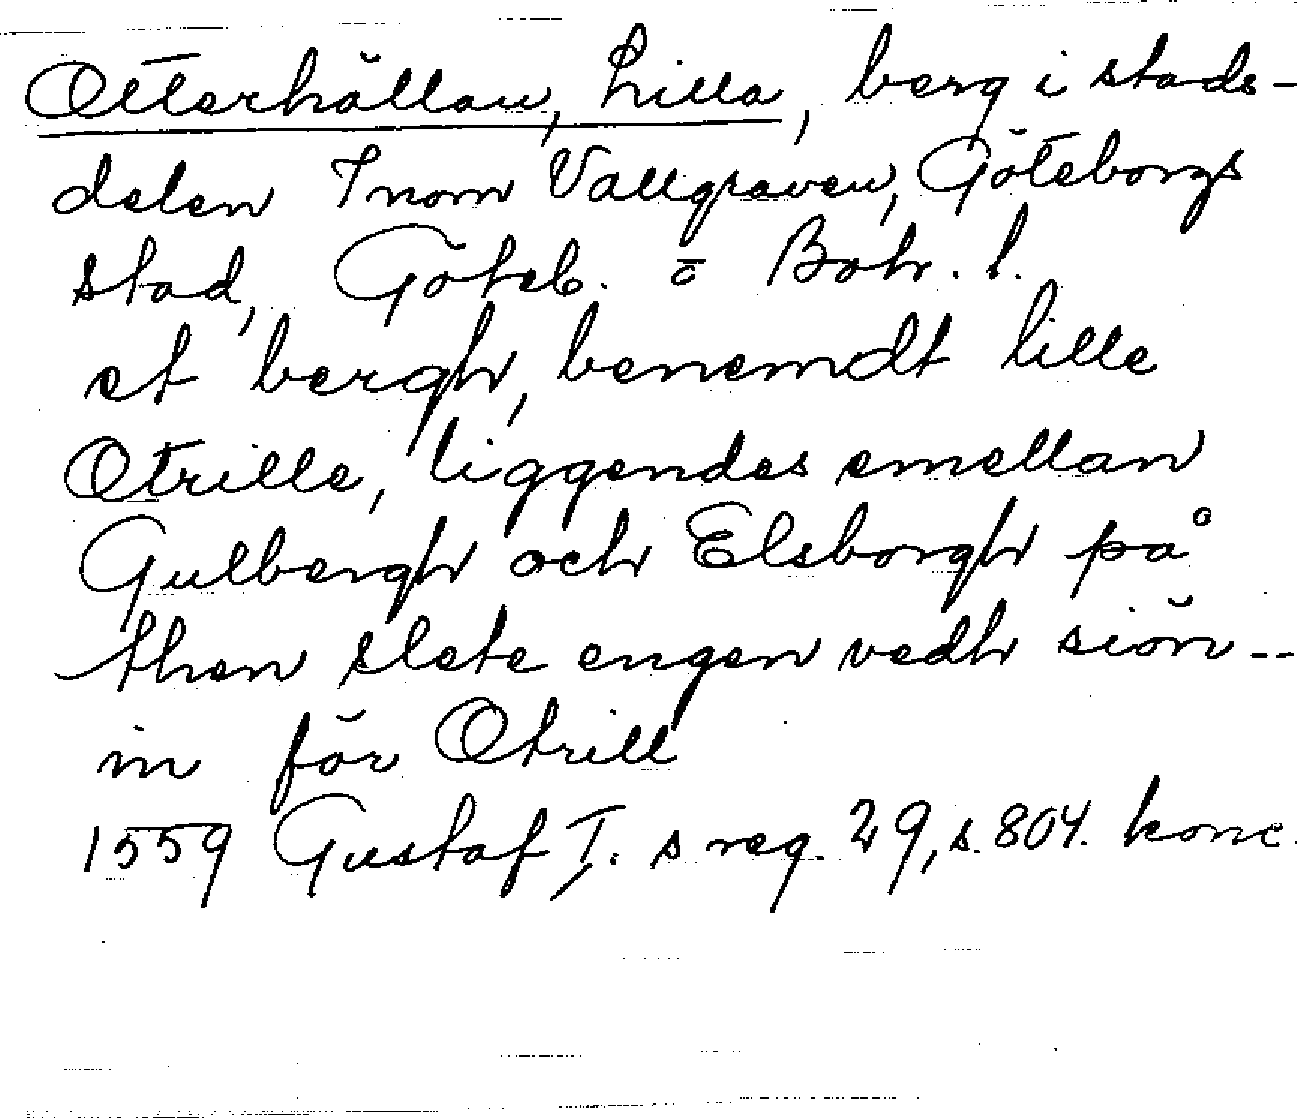 Otterhällan, Lilla, berg i stads-
delen Inom Vallgraven, Göteborgs
stad, Göteb. o Boh. l.
et bergh, benemdt lille
Otrille, liggendes emellan
Gulbergh och Elsborgh på
then slete engen vedh siön --
in för Otrill
1559 Gustaf I. s reg. 29, s. 804. konc.